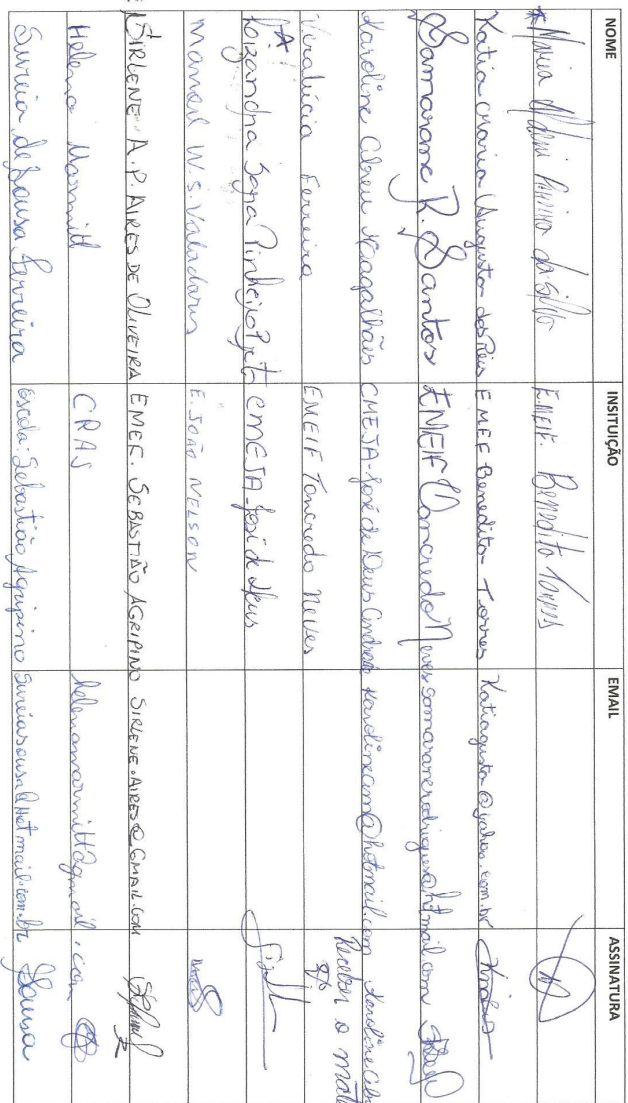 NOME INSITUIÇÃO EMAIL ASSINATURA
* Maria da Silva EMEIF. Benedito
Katia Maria Augusta dos Reis EMEF Benedito Torres Katiagusta@yahoo.com.br
Samarane R. Santos EMEIF Tancredo Neves samaranerodrigues@hotmail.com
Karoline Abreu Magalhães CMEJA-José de Deus Andrade karolinecam@hotmail.com Karoline
Veralúcia Ferreira EMEIF Tancredo Neves Receber o mate
Lizandra Sena Pinheiro CMEJA-José de Deus
Manoel W. S. Valadares E. JOÃO NELSON
SIRLENE A. P. AIRES DE OLIVEIRA EMEF. SEBASTIÃO AGRIPINO SIRLENE.AIRES@GMAIL.COM
Helena Marmitt CRAS helenamarmitt@gmail.com
Sureia de Sousa Ferreira escola: Sebastião Agripino sureiasousa@hotmail.com.br Sousa